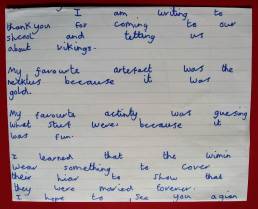 I am writing to
thank you for coming to our
shcool and telling us
about vikings.
My favourite artefact was the
necklus because it was
gold.
My favourite activity was guesing
what stuff were, because it
was fun.
I learned that the wimin
wear something to cover
their hiar to show that
they were maried forever.
I hope to see you agian